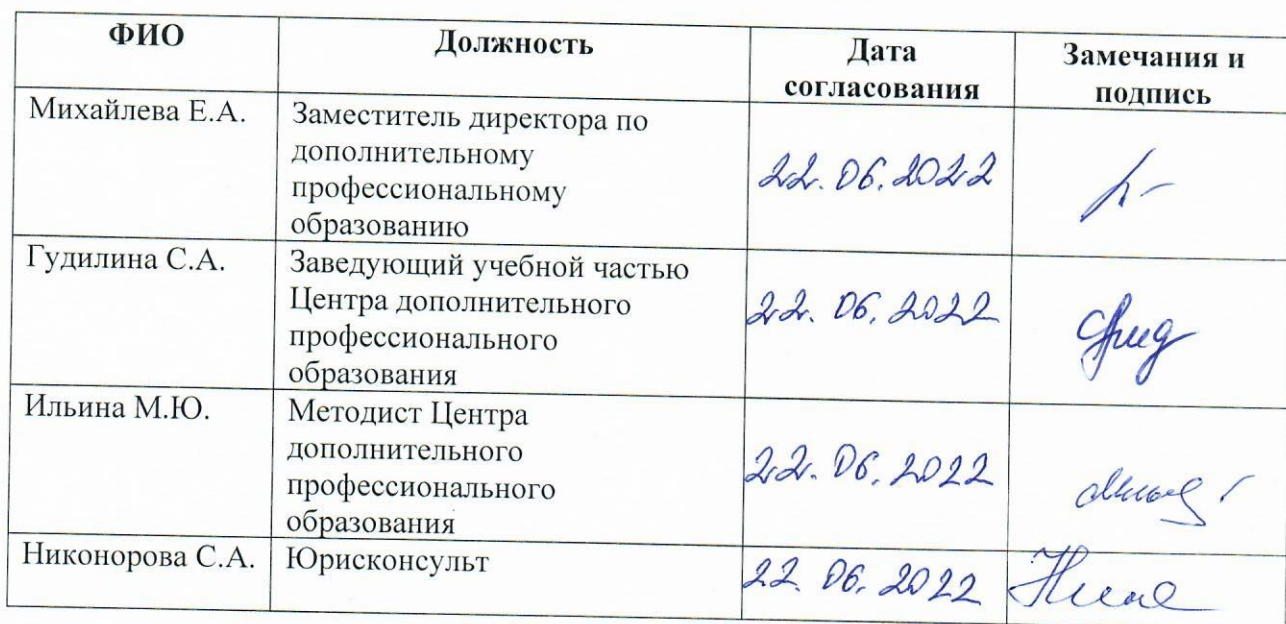 ФИО Должность Дата согласования Замечания и подпись
Михайлева Е.А. Заместитель директора по
дополнительному
профессиональному
образованию
22.06.2022
Гудилина С.А. Заведующий учебной частью
Центра дополнительного
профессионального
образования
22.06.2022
Ильина М.Ю. Методист Центра
дополнительного
профессионального
образования
22.06.2022
Никонорова С.А. Юрисконсульт
22.06.2022